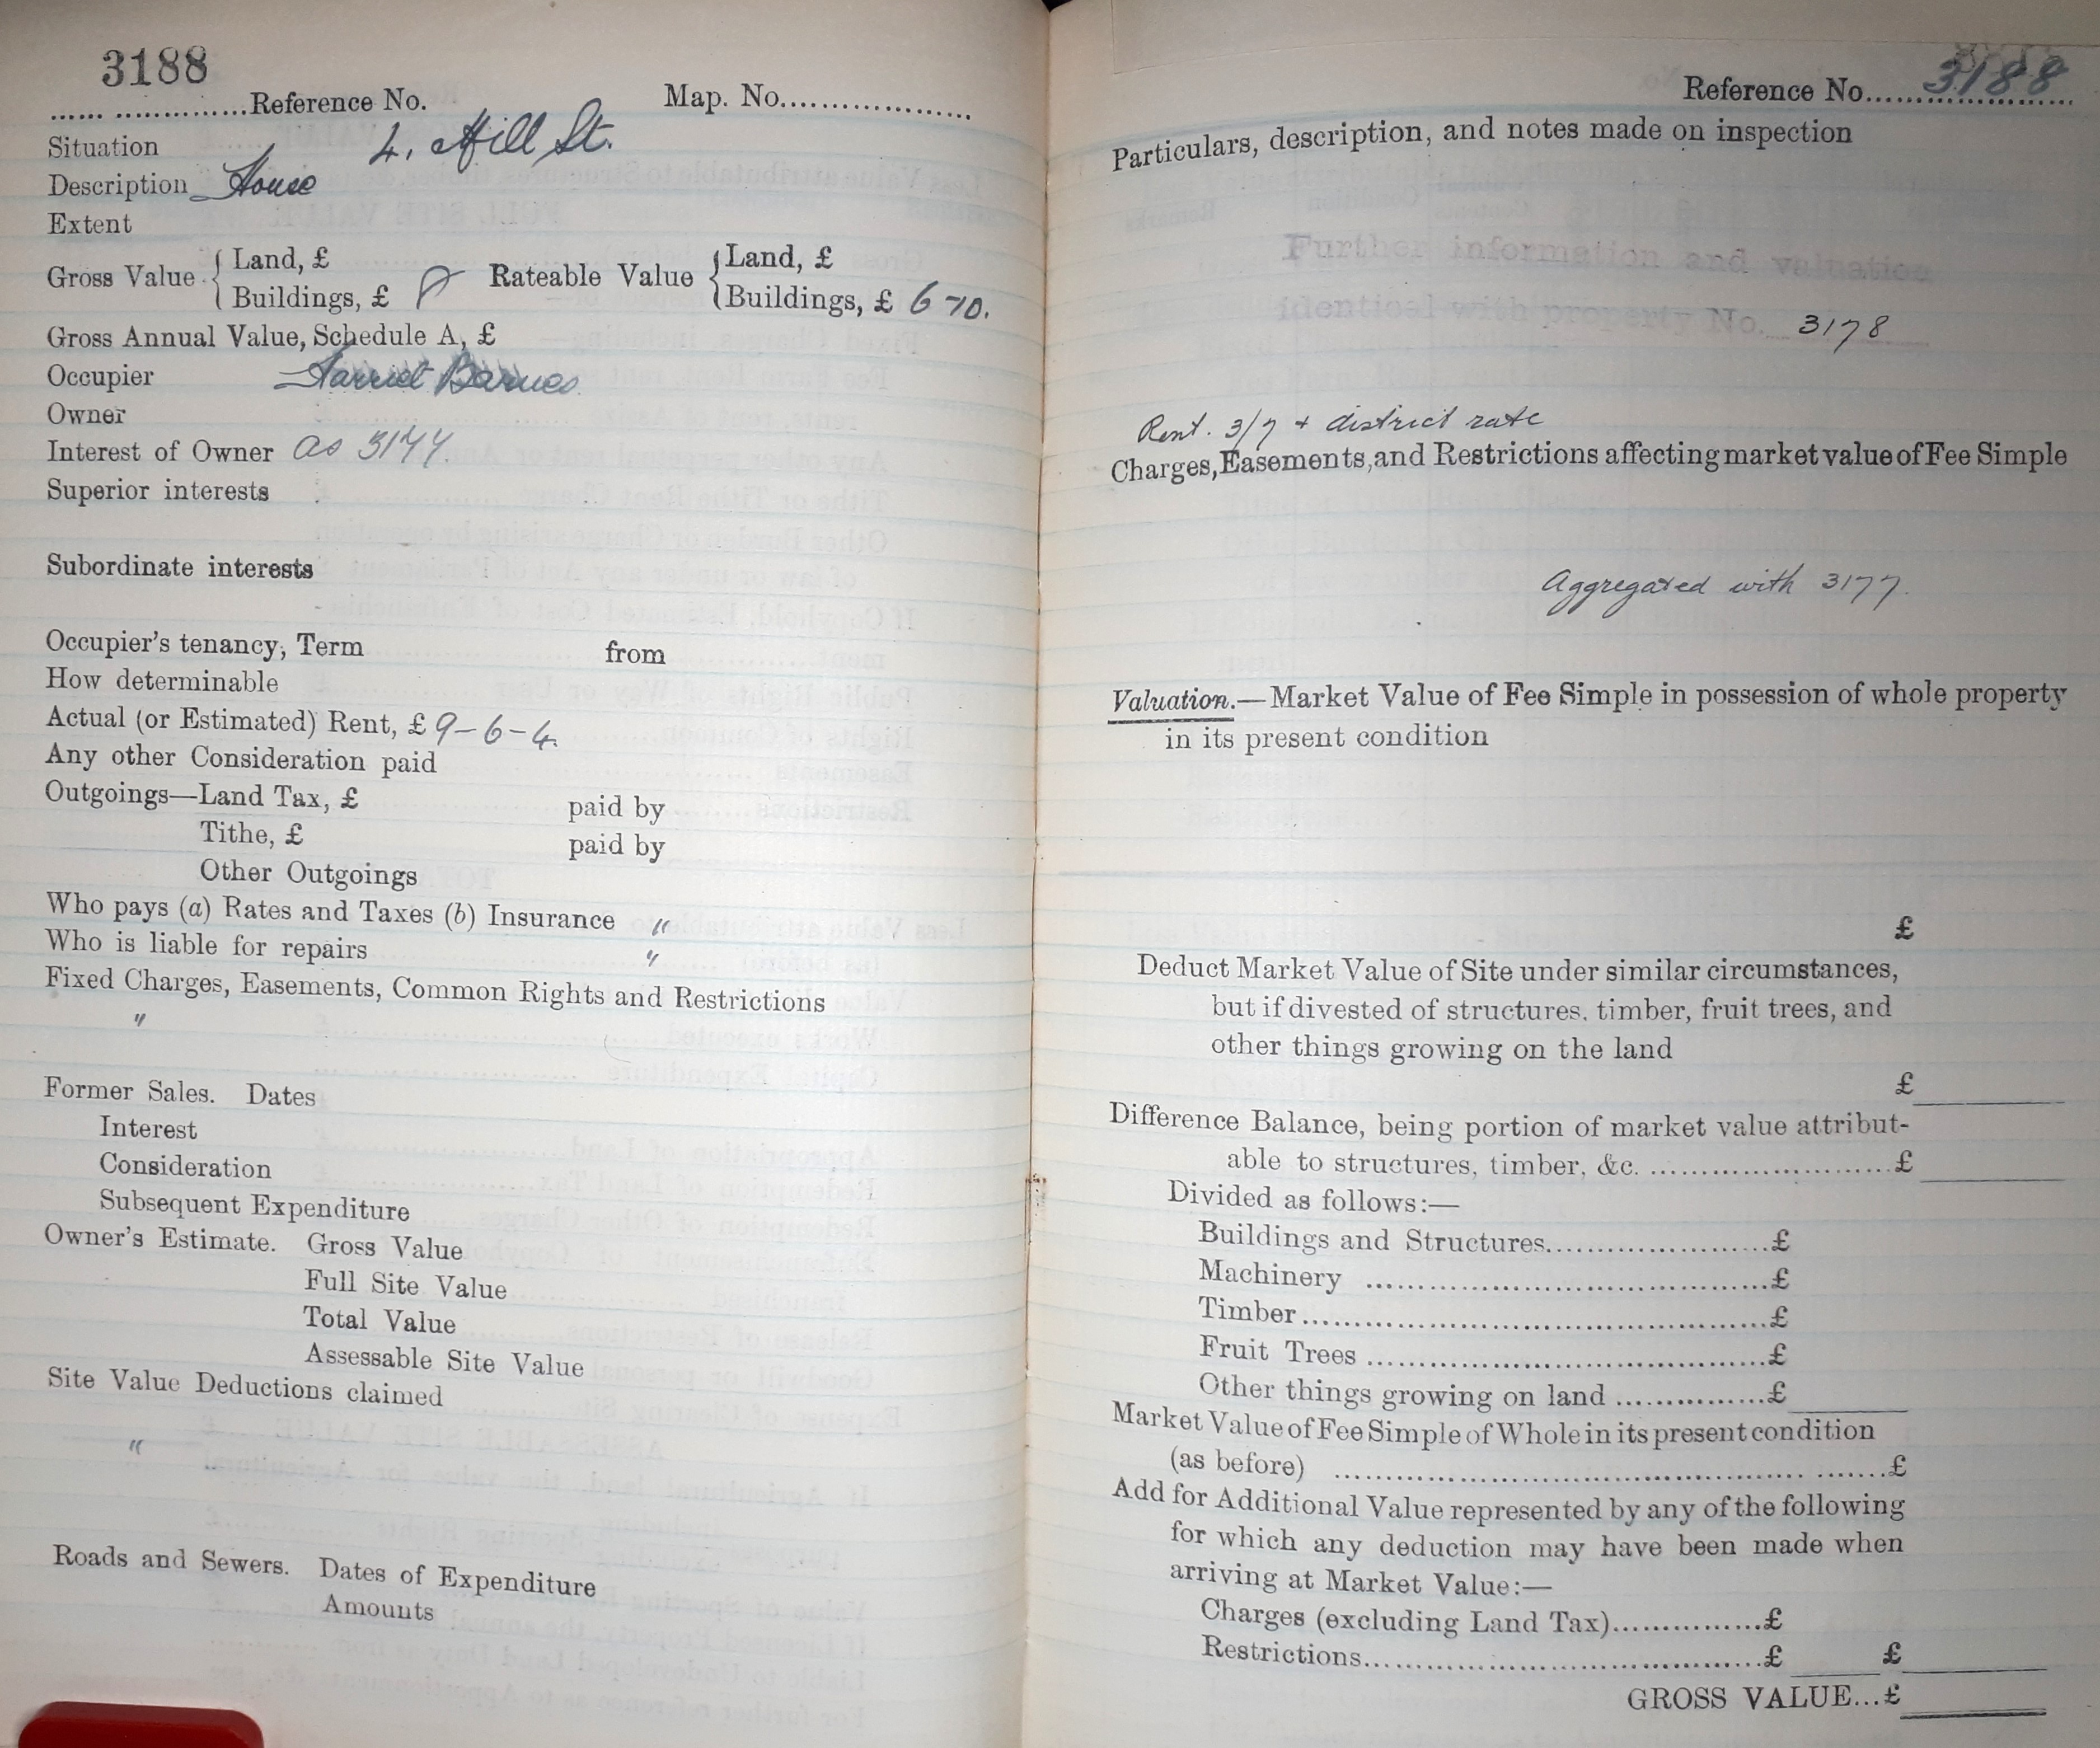 3188
...... ...............Reference No.
Map. No....................
Situation 4, Hill St.
Description House
Extent
Gross Value { Land, £
Buildings, £ 8
Rateable Value { Land, £
Buildings, £ 6-10.
Gross Annual Value, Schedule A, £
Occupier Harriet Barnes
Owner
Interest of Owner as 3177.
Superior interests
Subordinate interests
Occupier's tenancy, Term from
How determinable
Actual (or Estimated) Rent, £ 9-6-4.
Any other Consideration paid
Outgoings—Land Tax, £ paid by
Tithe, £ paid by
Other Outgoings
Who pays (a) Rates and Taxes (b) Insurance "
Who is liable for repairs "
Fixed Charges, Easements, Common Rights and Restrictions
"
Former Sales. Dates
Interest
Consideration
Subsequent Expenditure
Owner's Estimate. Gross Value
Full Site Value
Total Value
Assessable Site Value
Site Value Deductions claimed
"
Roads and Sewers. Dates of Expenditure
Amounts
Reference No. 3188
Particulars, description, and notes made on inspection
Further information and valuation
identical with property No. 3178
Rent. 3/7 + district rate
Charges, Easements, and Restrictions affecting market value of Fee Simple
Aggregated with 3177.
Valuation.—Market Value of Fee Simple in possession of whole property
in its present condition
£
Deduct Market Value of Site under similar circumstances,
but if divested of structures, timber, fruit trees, and
other things growing on the land
£
Difference Balance, being portion of market value attribut-
able to structures, timber, &c. ........................£
Divided as follows:—
Buildings and Structures......................£
Machinery ........................................£
Timber..............................................£
Fruit Trees ........................................£
Other things growing on land ...............£
Market Value of Fee Simple of Whole in its present condition
(as before) ....................................................£
Add for Additional Value represented by any of the following
for which any deduction may have been made when
arriving at Market Value:—
Charges (excluding Land Tax)...............£
Restrictions........................................£ £
GROSS VALUE...£